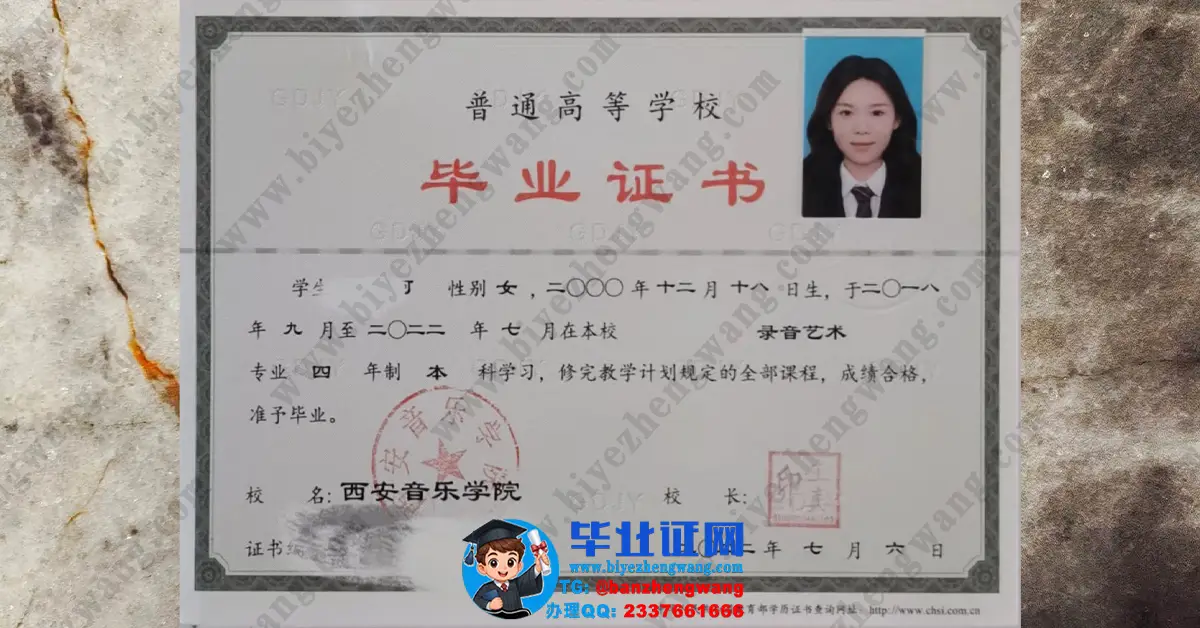 普通高等学校
毕业证书
学生 性别 女 ，二〇〇〇 年 十二 月 十八 日生，于二〇一八
年 九 月至 二〇二二 年 七 月在本校 录音艺术
专业 四 年制 本 科学习，修完教学计划规定的全部课程，成绩合格，
准予毕业。
安音乐学
校 名：西安音乐学院 校 长：
证书 二年 七 月 六 日
毕业证网
www.biyezhengwang.com
TG: @banzhengwang
办理QQ: 2337661666
育部学历证书查询网址：http://www.chsi.com.cn
www.biyezhengwang.com
GDJY